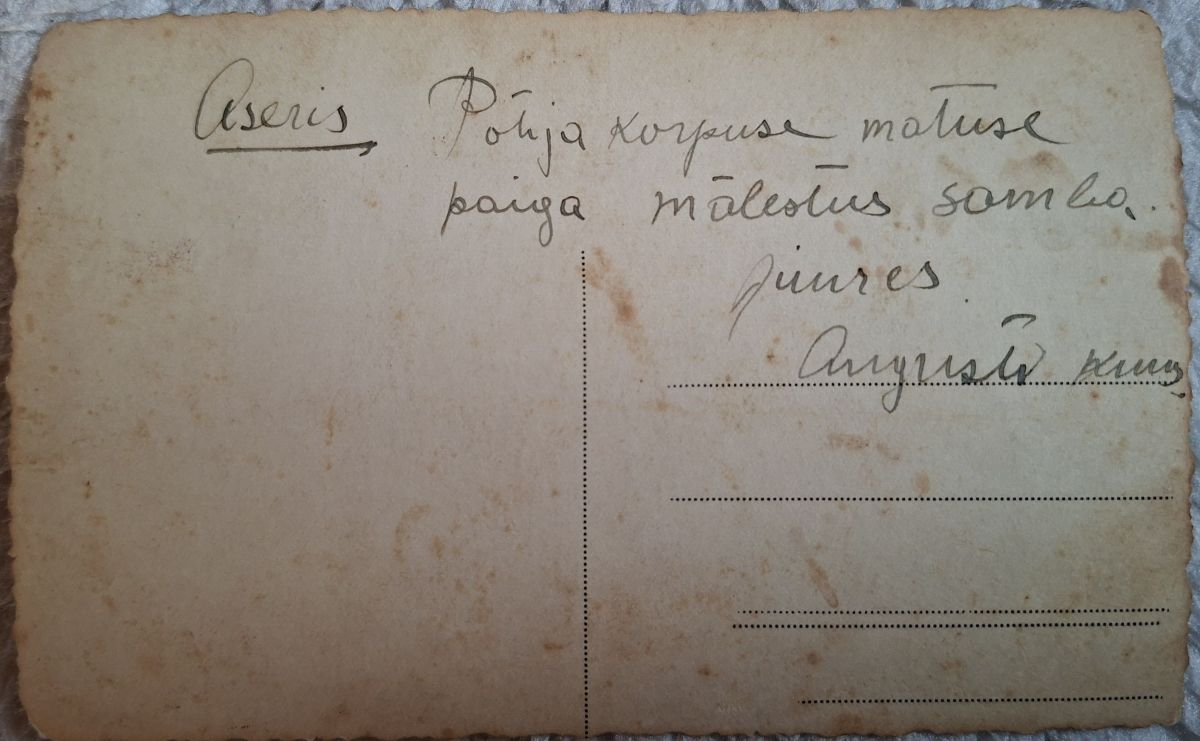 Aseris Põhja korpuse matuse
paiga mälestus samba
juures
Augusti kuus